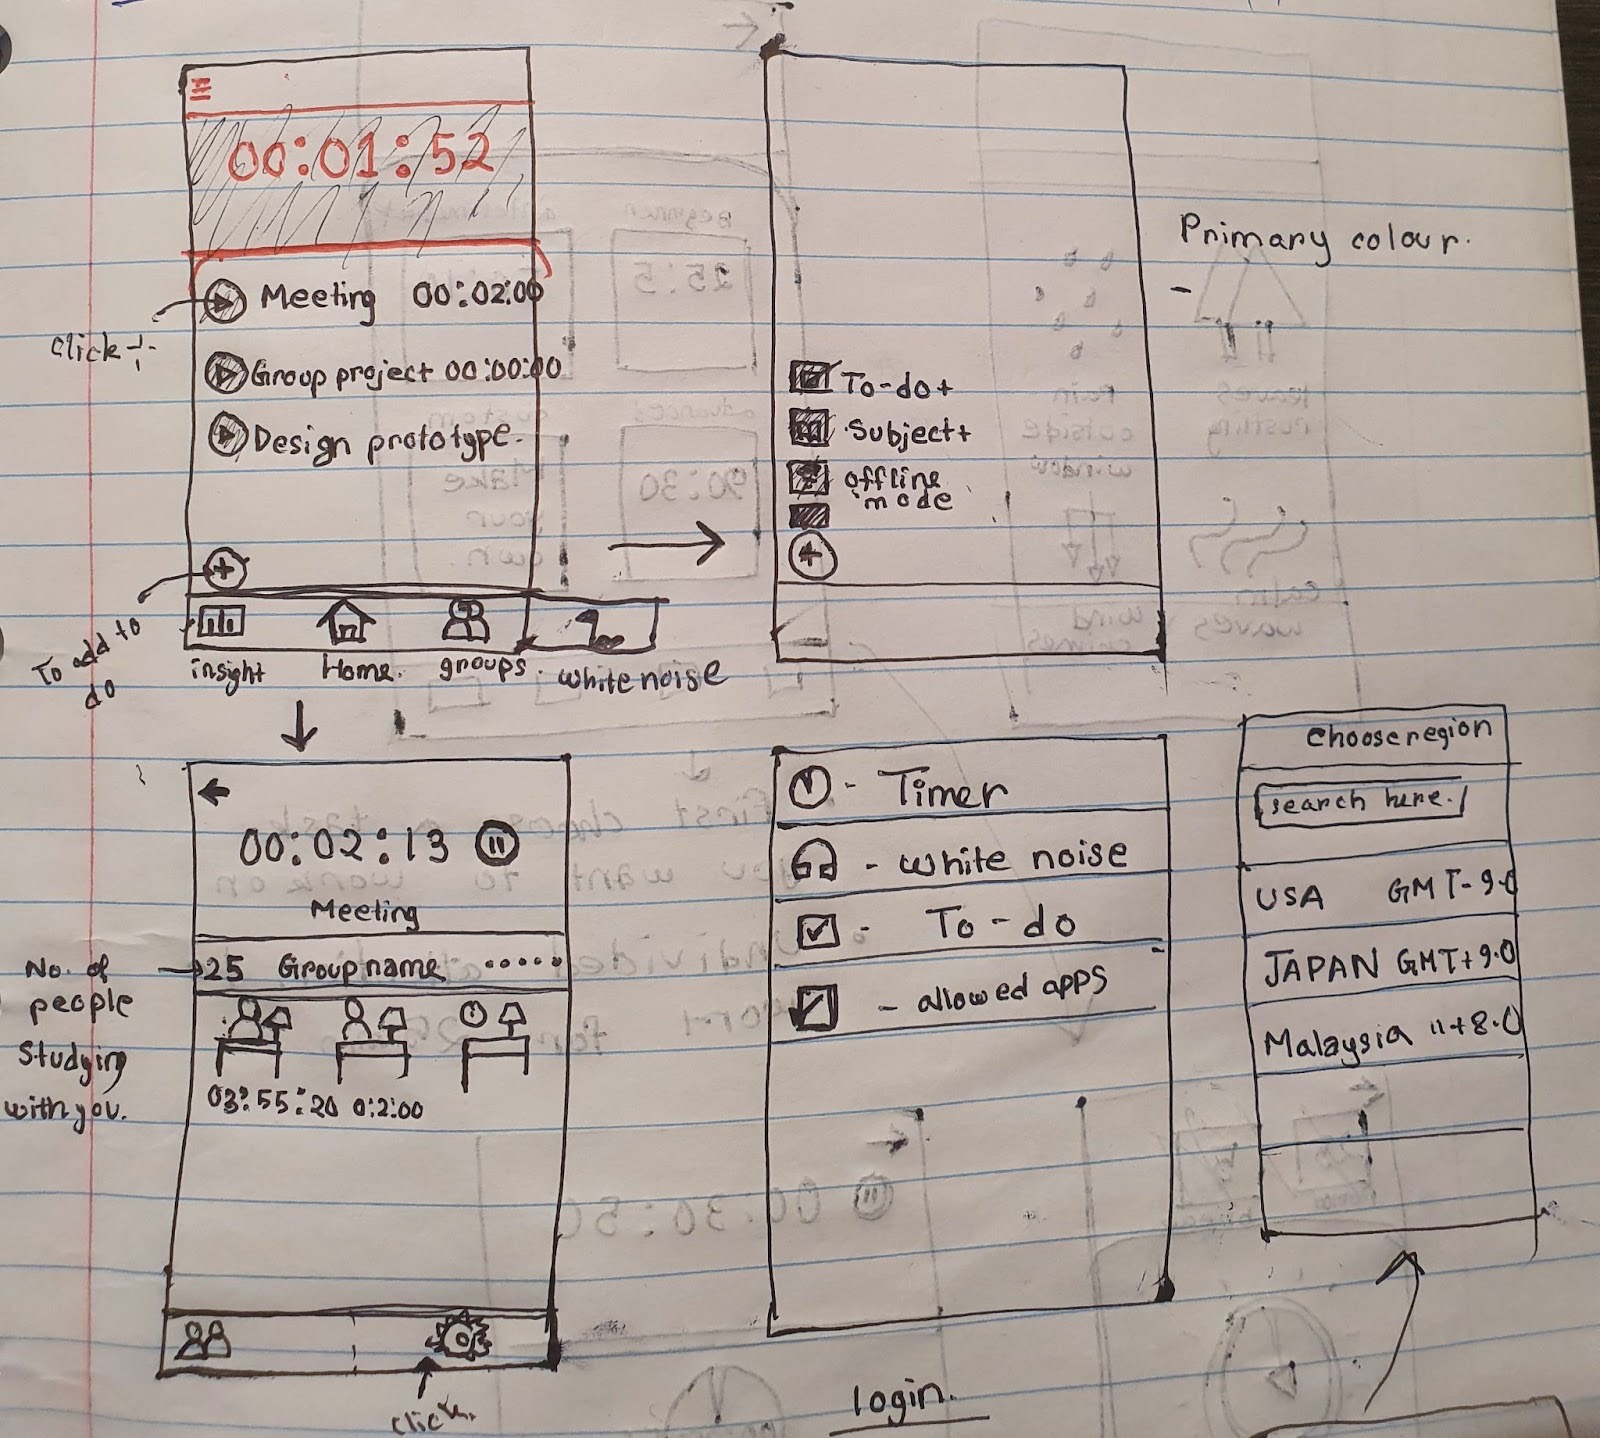 00:01:52
Meeting 00:02:00
click
Group project 00:00:00
Design prototype.
To add to
do
insight
Home.
groups.
white noise
To-do+
Subject+
offline
mode
Primary colour.
-
00:02:13
Meeting
No. of
people
Studying
with you.
25 Group name .....
03:55:20 0:2:00
click.
- Timer
- white noise
- To-do
- allowed apps
login.
Choose region
search here.
USA GMT-9.0
JAPAN GMT+9.0
Malaysia "+8.0